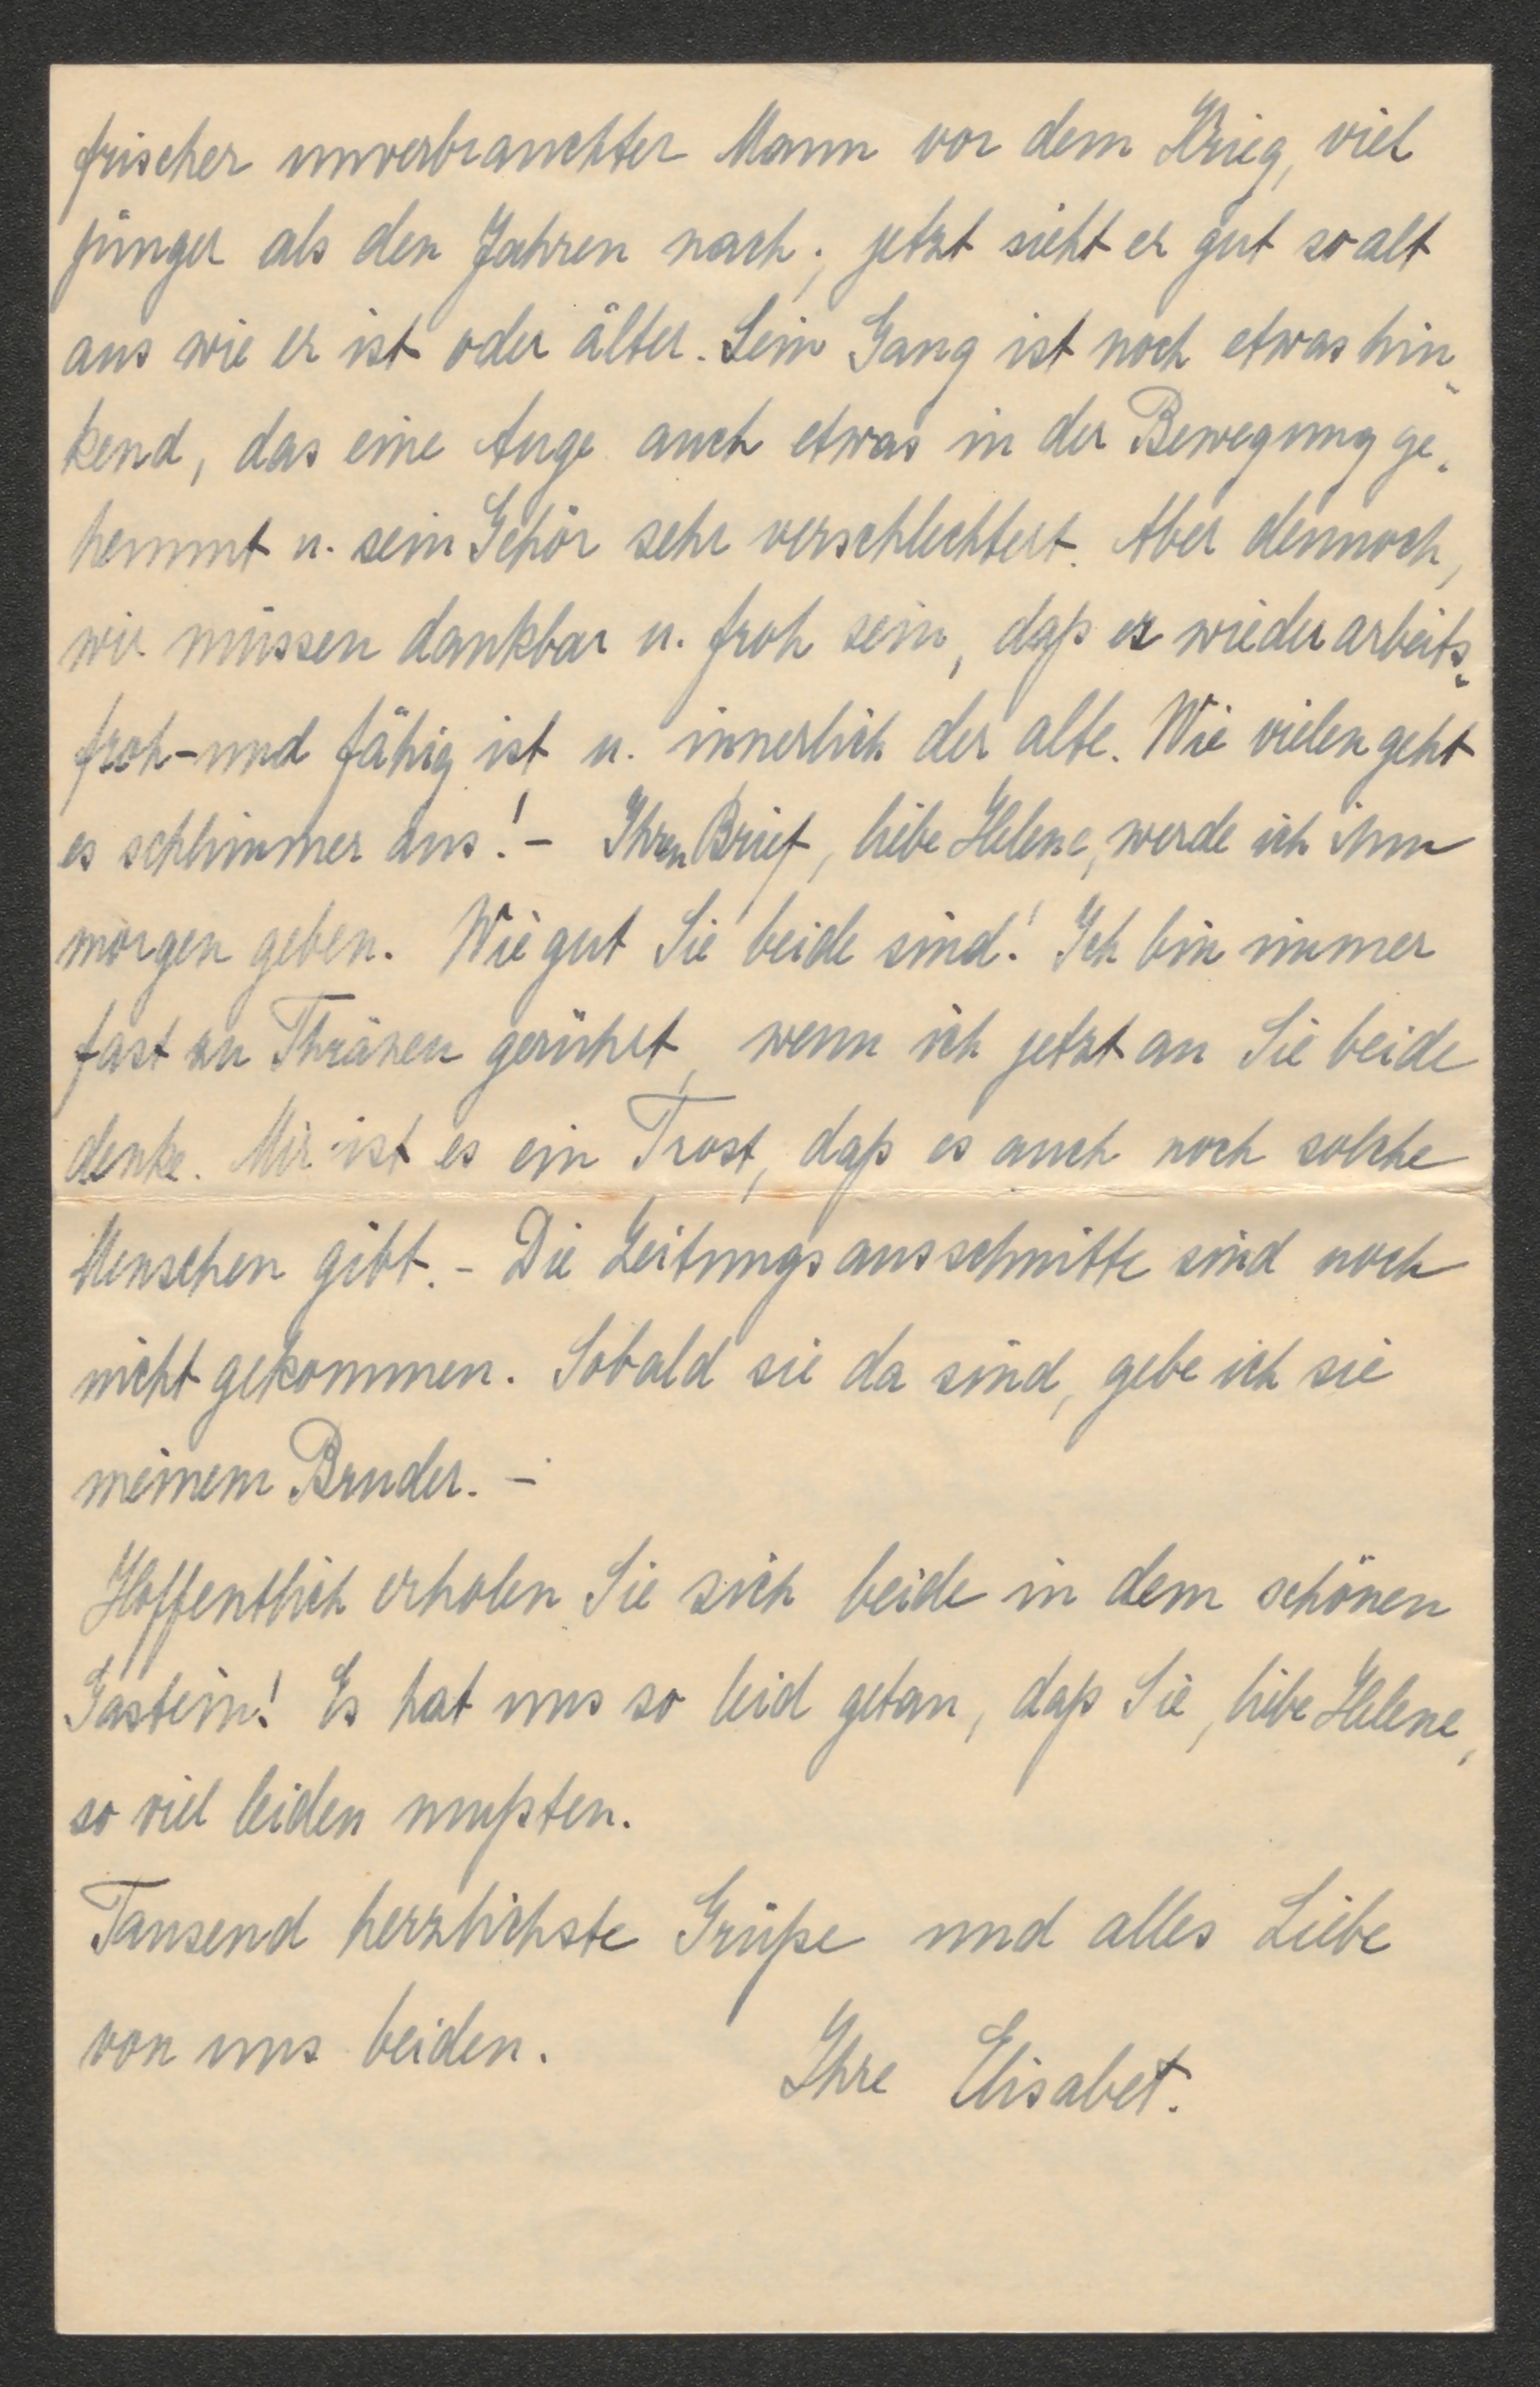 frischer unverbrauchter Mann vor dem Krieg, viel
jünger als den Jahren nach; jetzt sieht er gut so alt
aus wie er ist oder älter. Sein Gang ist noch etwas hin-
kend, das eine Auge auch etwas in der Bewegung ge-
hemmt u. sein Gehör sehr verschlechtert. Aber dennoch,
wir müssen dankbar u. froh sein, daß er wieder arbeits-
froh- und fähig ist u. innerlich der alte. Wie vielen geht
es schlimmer aus! - Ihren Brief, liebe Helene, werde ich ihm
morgen geben. Wie gut Sie beide sind! Ich bin immer
fast zu Thränen gerührt, wenn ich jetzt an Sie beide
denke. Mir ist es ein Trost, daß es auch noch solche
Menschen gibt. - Die Zeitungsausschnitte sind noch
nicht gekommen. Sobald sie da sind, gebe ich sie
meinem Bruder. -
Hoffentlich erholen Sie sich beide in dem schönen
Gastein! Es hat uns so leid getan, daß Sie, liebe Helene,
so viel leiden mußten.
Tausend herzlichste Grüße und alles Liebe
von uns beiden.
Ihre Elisabet.